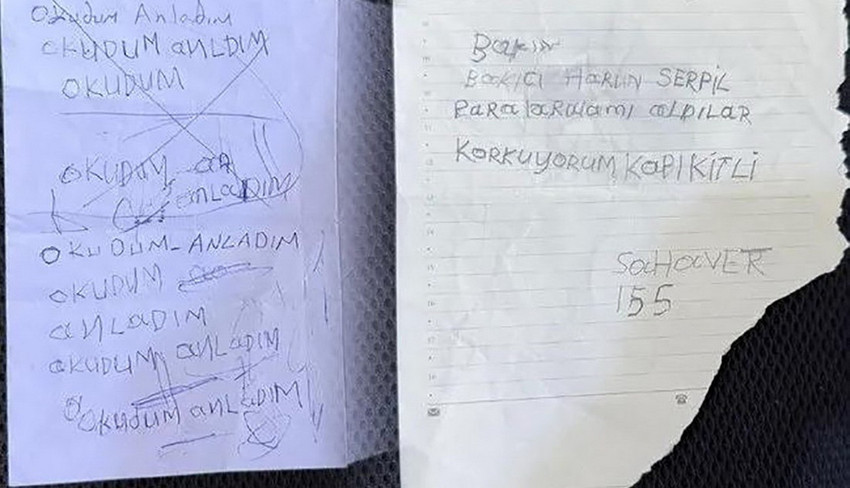 Okudum Anladım
OKUDUM anLDIM
OKUDUM
OKUDUM
anLaDIM
OKUDUM-ANLADIM
OKUDUM
anLaDIM
OKUDUM anLaDIM
OKUDUM anLaDIM
BaKın
BaKICI HaRUN SERPİL
PaRaLaRıLamı aLDILAR
KORKUYORUM KaPI KİTLİ
SaHaVET
155